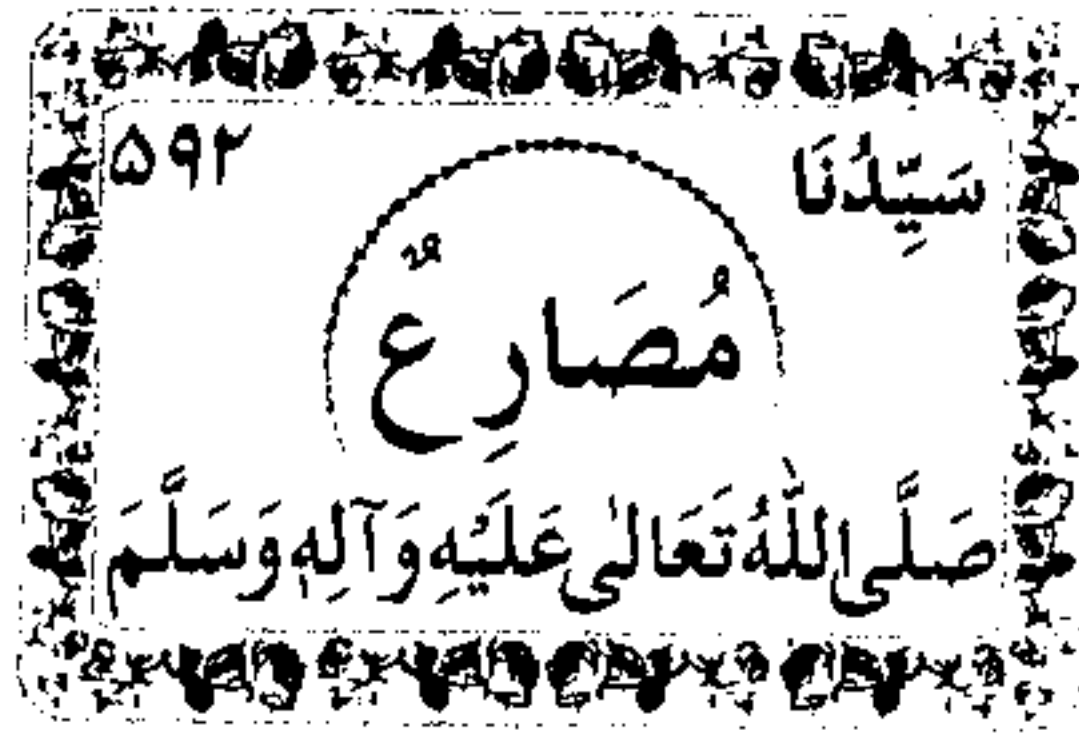 سَيِّدُنَا ۵۹۲
مُصَارِعٌ
صَلَّى اللّٰهُ تَعَالٰى عَلَيْهِ وَآلِهٖ وَسَلَّمَ